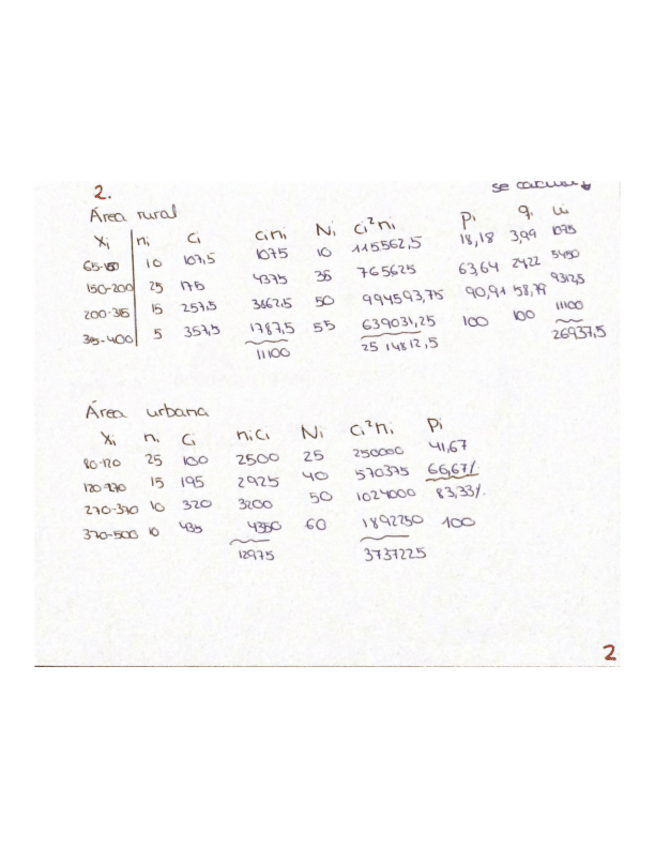 2.
se calcula
Área rural
Xi ni Ci cini Ni ci²ni Pi qi ui
65-150 10 107,5 1075 10 115562,5 18,18 3,99 1075
150-200 25 175 4375 35 765625 63,64 2422 5450
200-315 15 257,5 3862,5 50 994593,75 90,91 58,79 9312,5
315-400 5 357,5 1787,5 55 639031,25 100 100 11100
11100 2514812,5 26937,5
Área urbana
Xi ni Ci nici Ni Ci²ni Pi
80-120 25 100 2500 25 250000 41,67
120-270 15 195 2925 40 570375 66,67%
270-370 10 320 3200 50 1024000 83,33%
370-500 10 435 4350 60 1892250 100
12975 3737225
2